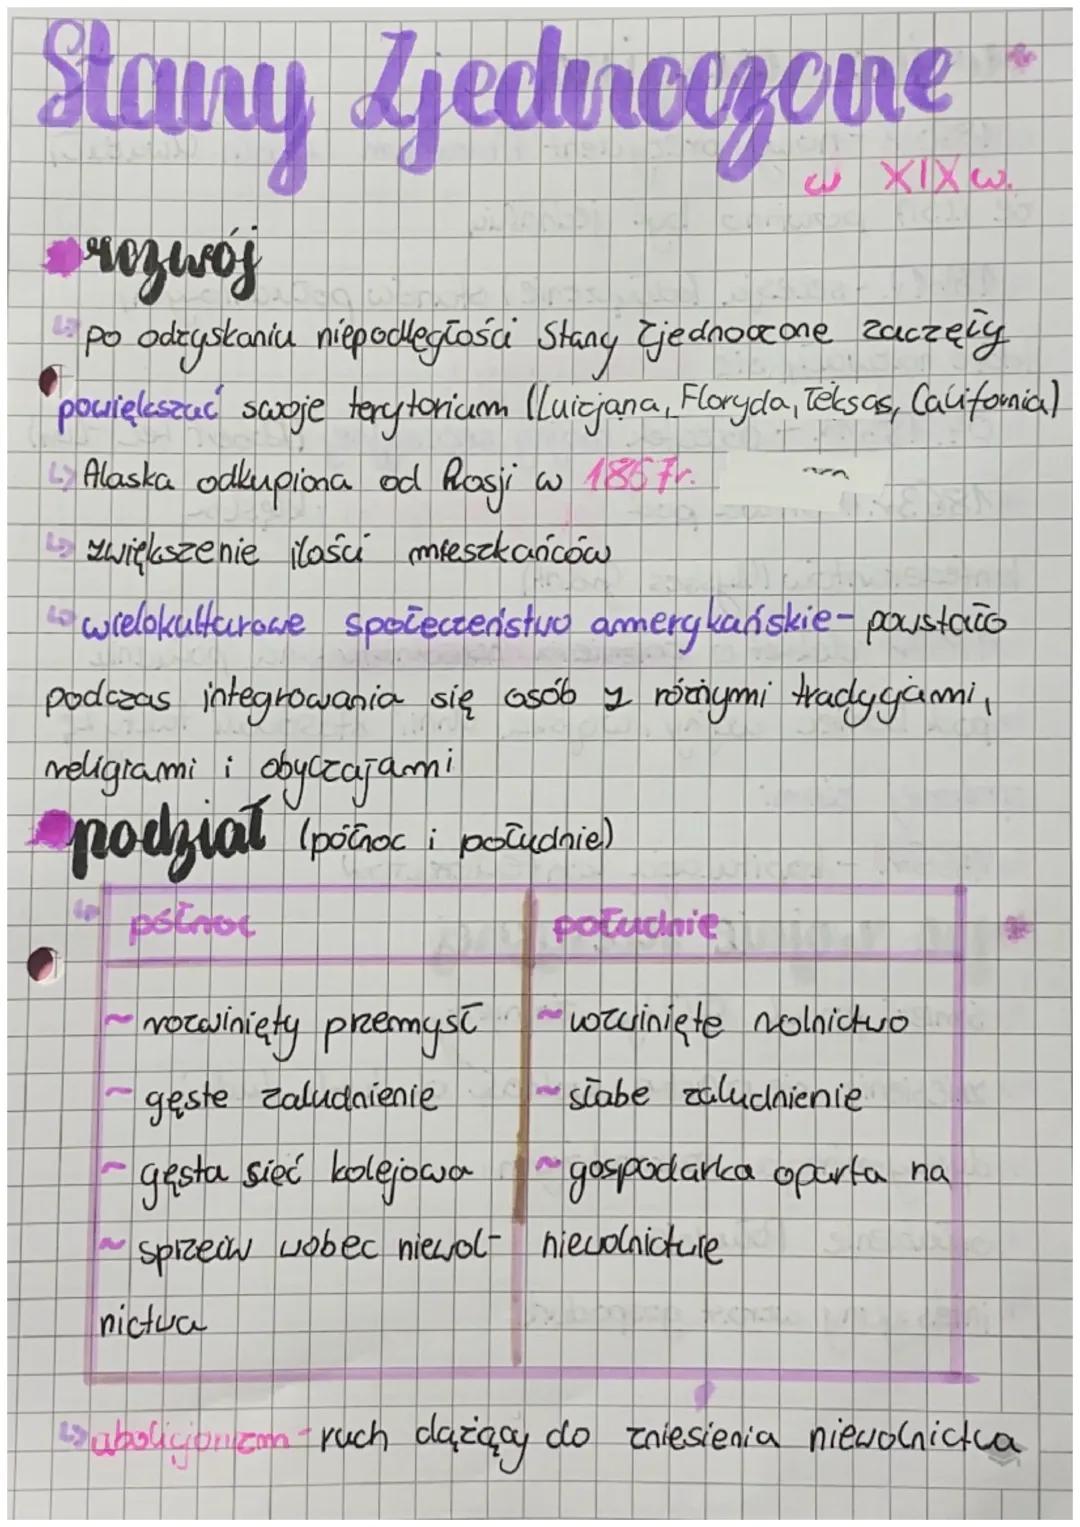 Stany Zjednoczone
w XIX w.
rozwój
↳ po odzyskaniu niepodległości Stany Zjednoczone zaczęły
powiększać swoje terytorium (Luizjana, Floryda, Teksas, California)
↳ Alaska odkupiona od Rosji w 1867r.
↳ zwiększenie ilości mieszkańców
↳ wielokulturowe społeczeństwo amerykańskie - powstało
podczas integrowania się osób z różnymi tradycjami,
religiami i obyczajami
podział (północ i południe)
↳ północ
~ rozwinięty przemysł
~ gęste zaludnienie
~ gęsta sieć kolejowa
~ sprzeciw wobec niewol-
nictwa
południe
~ rozwinięte rolnictwo
~ słabe zaludnienie
~ gospodarka oparta na
niewolnictwie
↳ abolicjonizm - ruch dążący do zniesienia niewolnictwa